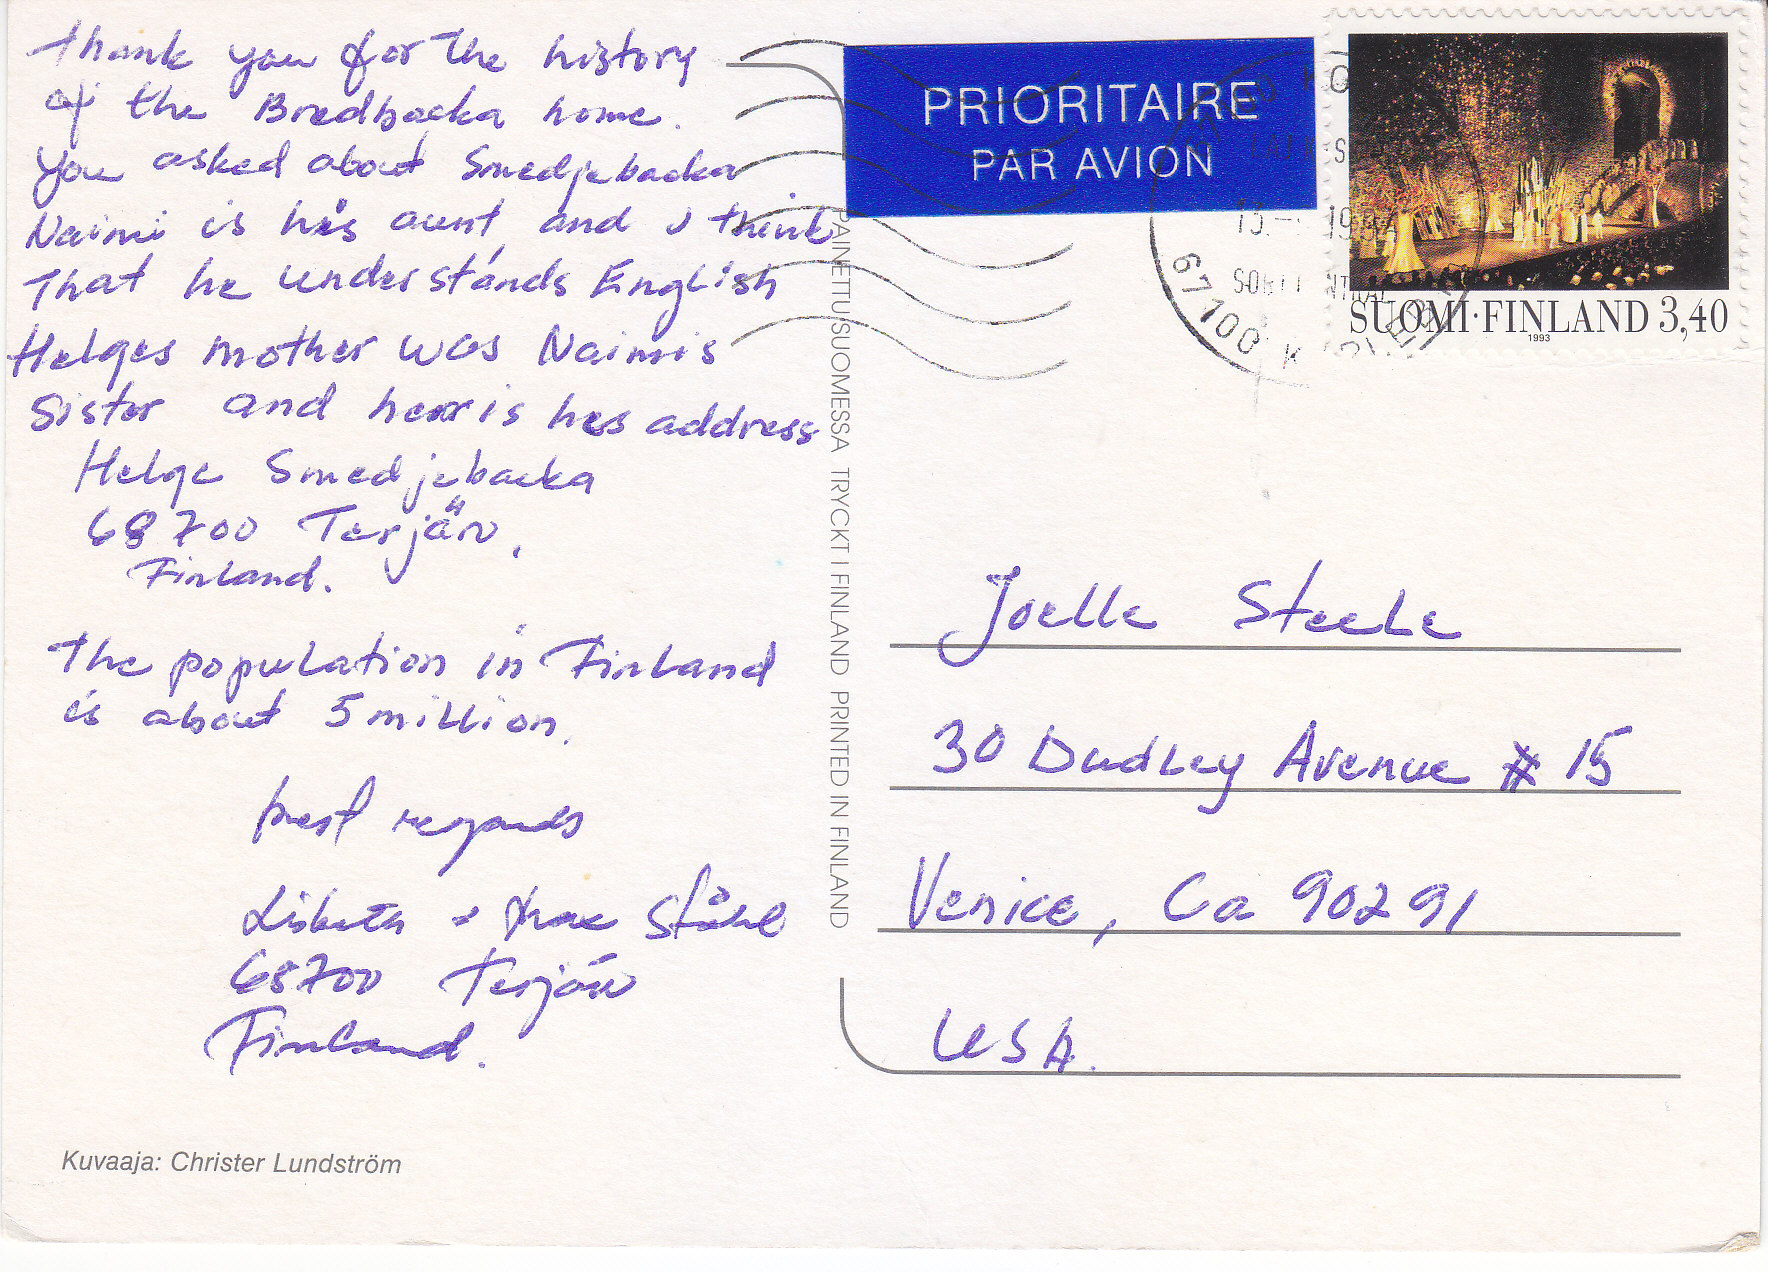 Thank you for the history
of the Bredbacka home.
You asked about Smedjebacka
Naimi is his aunt, and I think
That he understands English
Helges mother was Naimis
Sister and herr is hes address
Helge Smedjebacka
68700 Terjärv,
Finland.
The population in Finland
is about 5 million.
best regards
Ståhl
68700 Terjärv
Finland.
Kuvaaja: Christer Lundström
PAINETTU SUOMESSA TRYCKT I FINLAND PRINTED IN FINLAND
PRIORITAIRE
PAR AVION
67100
SUOMI·FINLAND 3,40
1993
Joelle Steele
30 Dudley Avenue # 15
Venice, Ca 90291
USA.